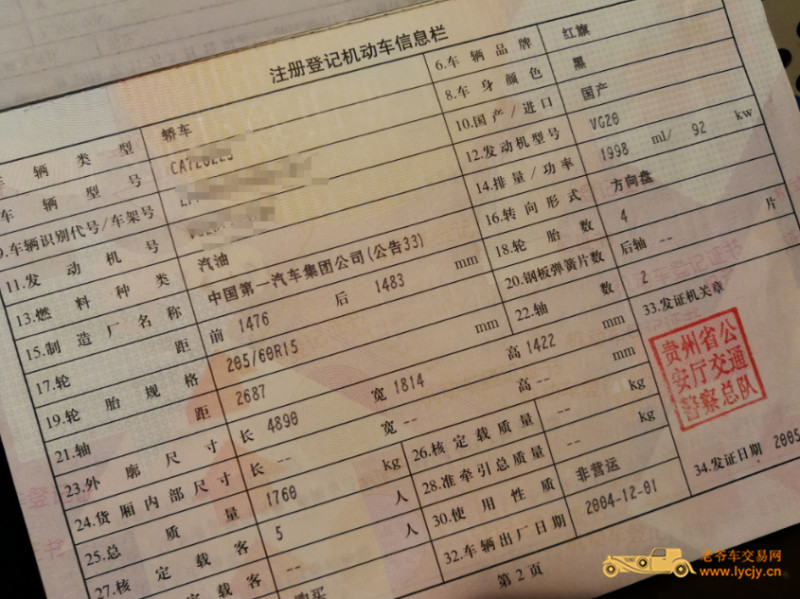 注册登记机动车信息栏
车辆类型 轿车 6.车辆品牌 红旗
车辆型号 CA7202E3 8.车身颜色 黑
9.车辆识别代号/车架号 10.国产/进口 国产
11.发动机号 12.发动机型号 VG20
13.燃料种类 汽油 14.排量/功率 1998 ml/ 92 kw
15.制造厂名称 中国第一汽车集团公司(公告33) 16.转向形式 方向盘
17.轮距 前 1476 后 1483 mm 18.轮胎数 4
19.轮胎规格 205/60R15 20.钢板弹簧片数 后轴 -- 片
21.轴距 2687 mm 22.轴数 2
23.外廓尺寸 长 4890 宽 1814 高 1422 mm 33.发证机关章
贵州省公
安厅交通
警察总队
24.货厢内部尺寸 长 -- 宽 -- 高 -- mm
25.总质量 1760 kg 26.核定载质量 -- kg
27.核定载客 5 人 28.准牵引总质量 -- kg
核定载客 -- 人 30.使用性质 非营运
购买 32.车辆出厂日期 2004-12-01 34.发证日期 2005
第 2 页
老爷车交易网
www.lycjy.cn